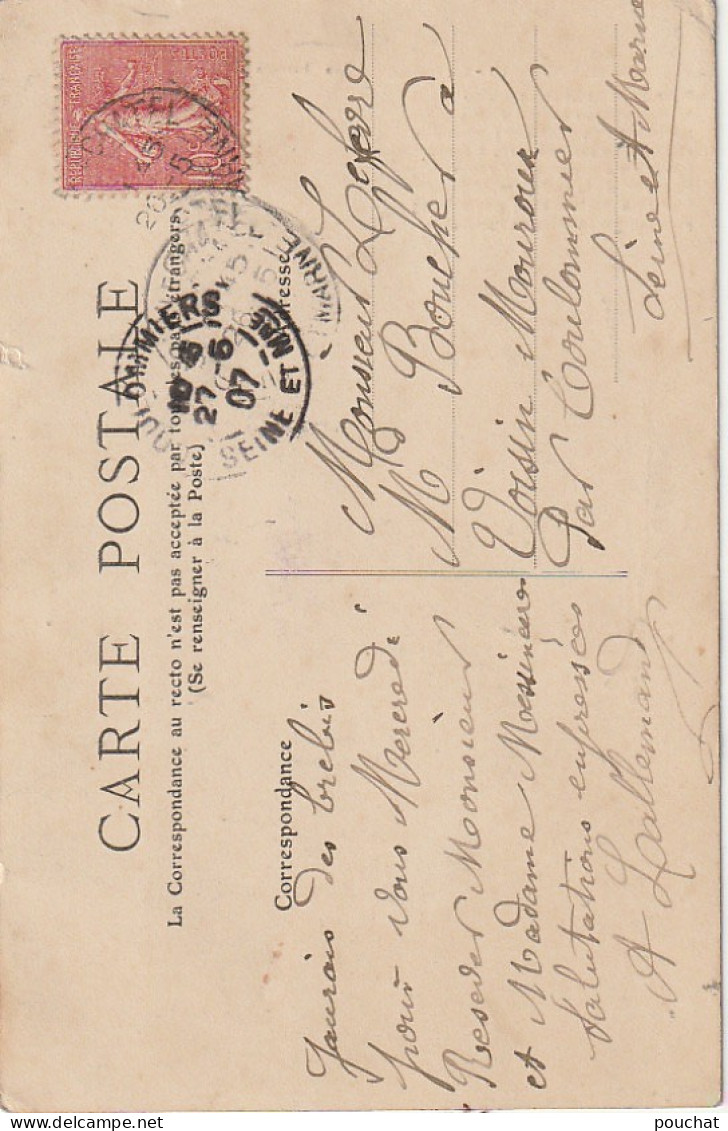 CARTE POSTALE
La Correspondance au recto n'est pas acceptée par tous les pays étrangers
(Se renseigner à la Poste)
Correspondance
J'aurais des brebis
pour vous Mercredi
Resever Monsieur
et Madame Mes sincères
Salutations enpressées
A Lallemand
Adresse
Monsieur Lefevre
M Boucher a
Voisin Mouroux
Par Coulommier
Seine et Marne
REPUBLIQUE FRANÇAISE
POSTES
10
COULOMMIERS
27 -5
07
SEINE ET MNE
MARNE
pouchat